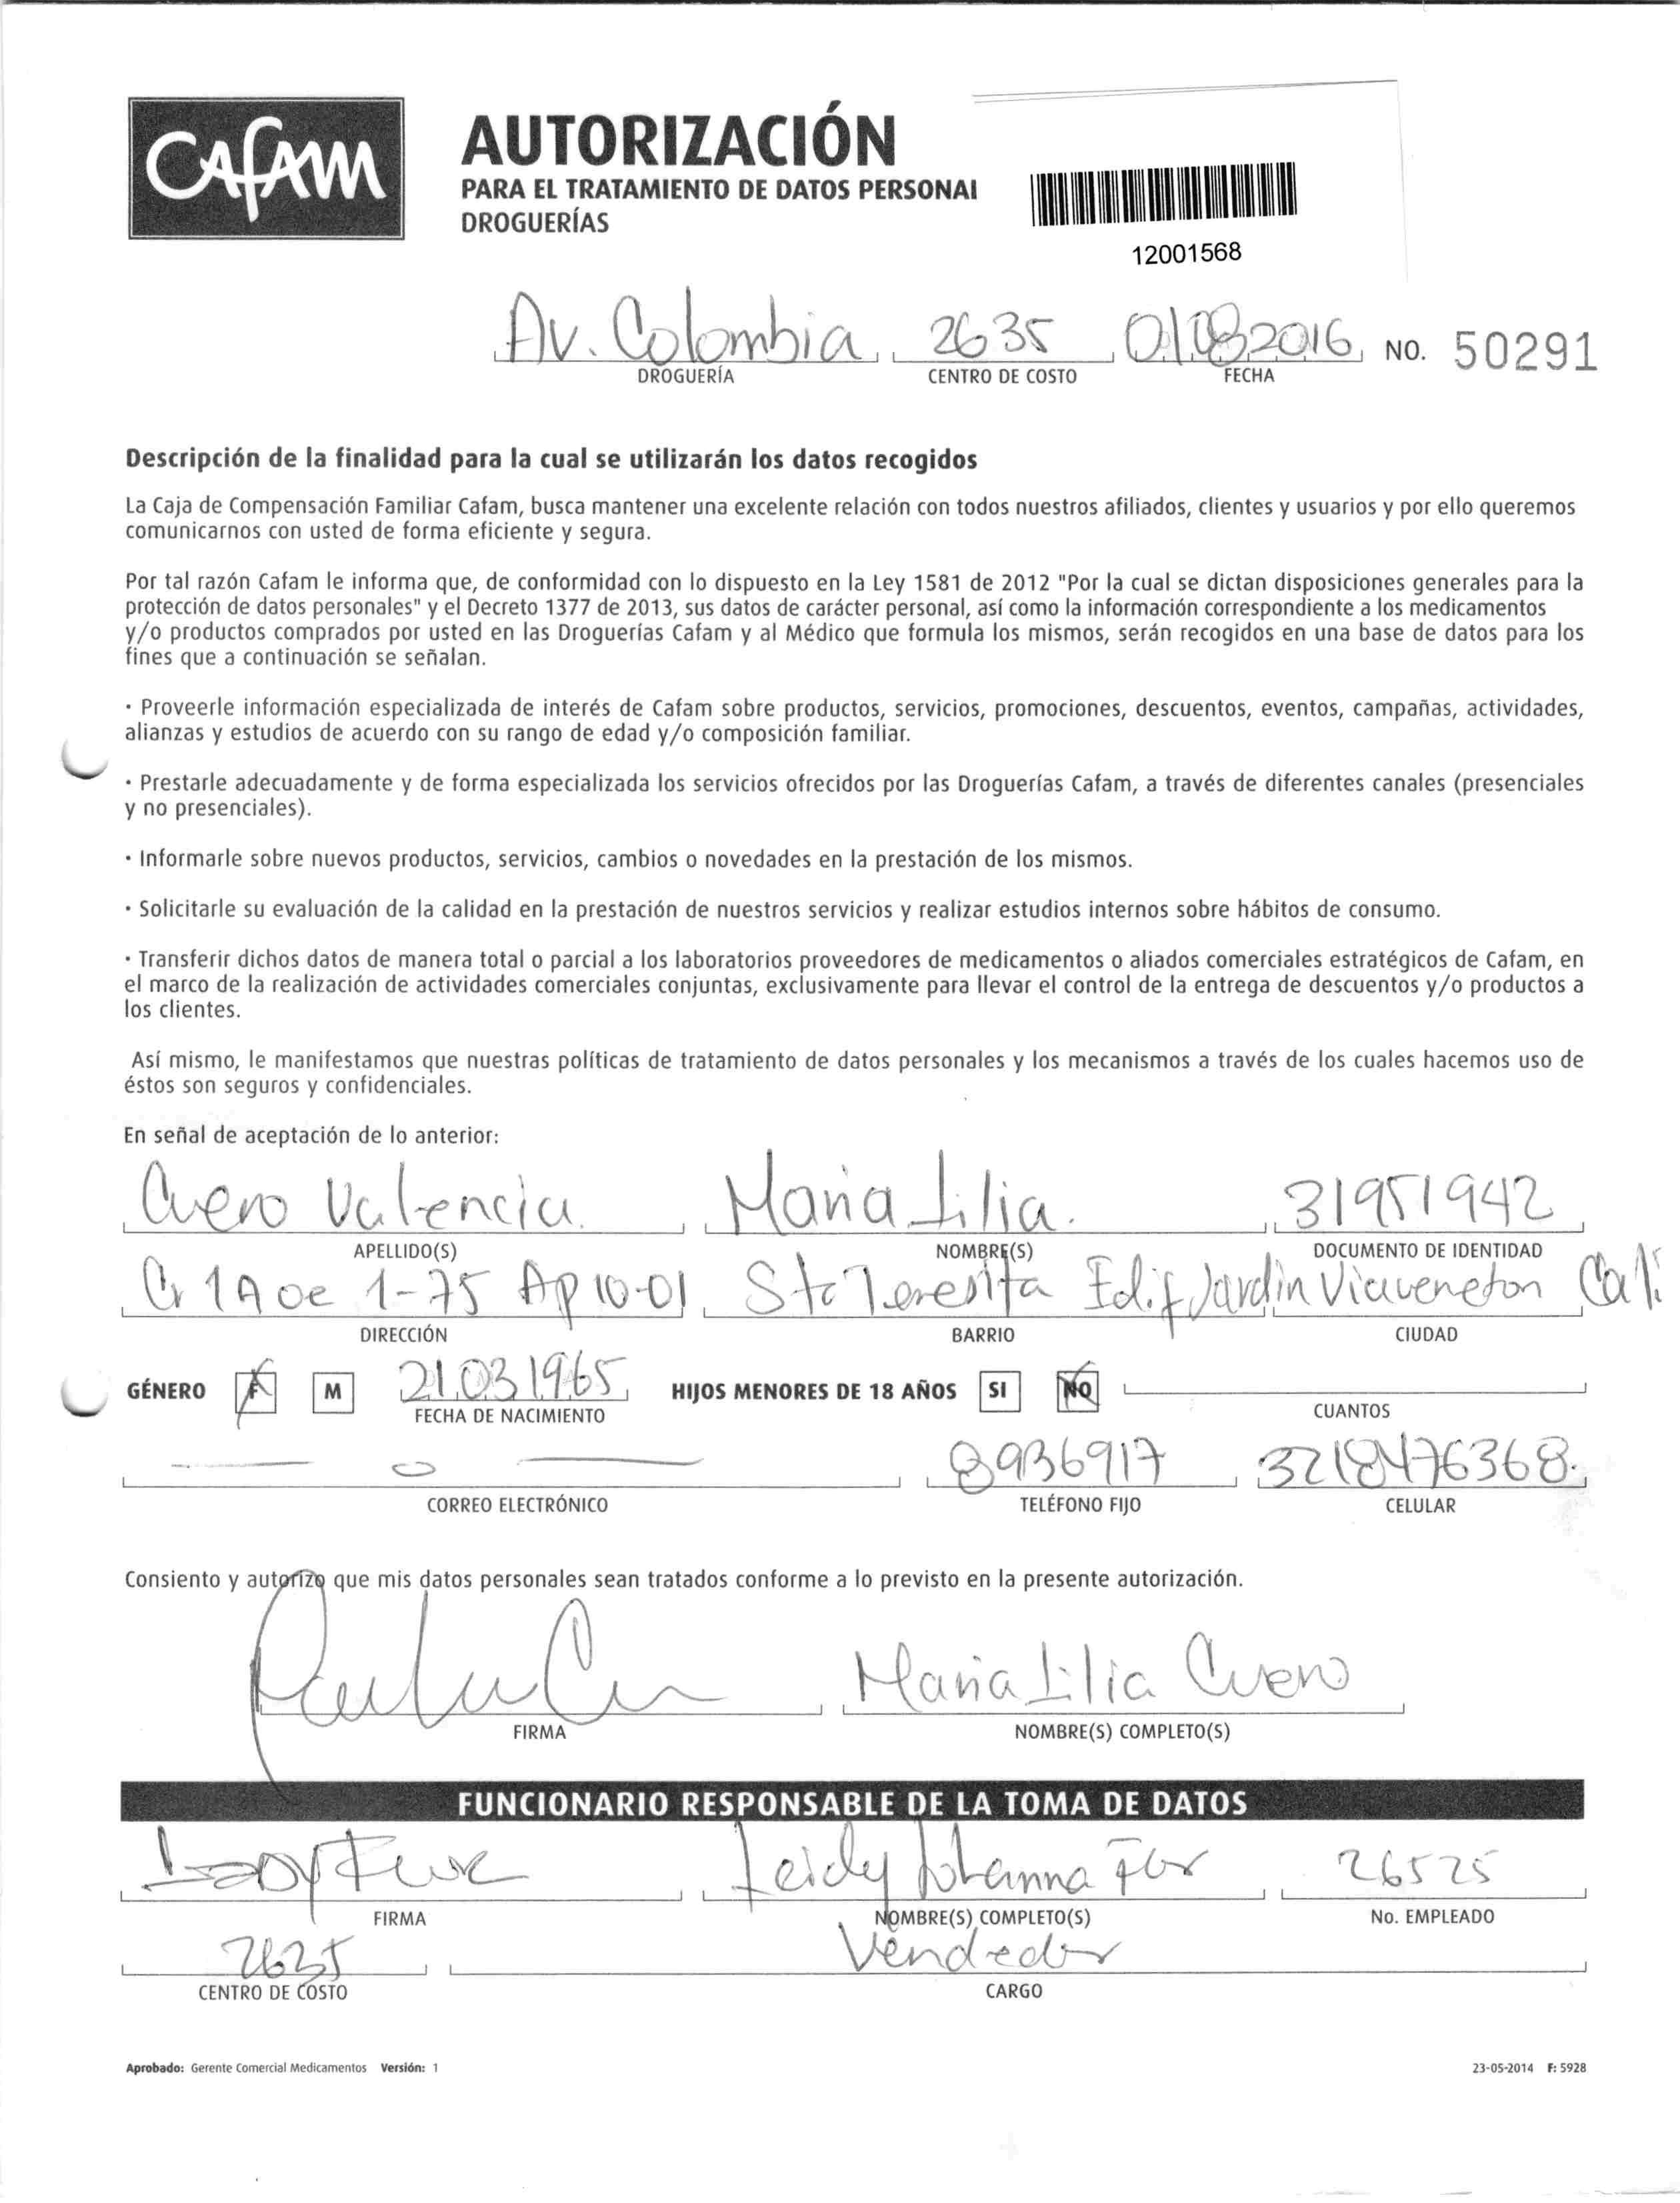 CAFAM
AUTORIZACIÓN
PARA EL TRATAMIENTO DE DATOS PERSONAI
DROGUERÍAS
12001568
Av. Colombia 2635 01082016 NO. 50291
DROGUERÍA CENTRO DE COSTO FECHA
Descripción de la finalidad para la cual se utilizarán los datos recogidos
La Caja de Compensación Familiar Cafam, busca mantener una excelente relación con todos nuestros afiliados, clientes y usuarios y por ello queremos
comunicarnos con usted de forma eficiente y segura.
Por tal razón Cafam le informa que, de conformidad con lo dispuesto en la Ley 1581 de 2012 "Por la cual se dictan disposiciones generales para la
protección de datos personales" y el Decreto 1377 de 2013, sus datos de carácter personal, así como la información correspondiente a los medicamentos
y/o productos comprados por usted en las Droguerías Cafam y al Médico que formula los mismos, serán recogidos en una base de datos para los
fines que a continuación se señalan.
· Proveerle información especializada de interés de Cafam sobre productos, servicios, promociones, descuentos, eventos, campañas, actividades,
alianzas y estudios de acuerdo con su rango de edad y/o composición familiar.
· Prestarle adecuadamente y de forma especializada los servicios ofrecidos por las Droguerías Cafam, a través de diferentes canales (presenciales
y no presenciales).
· Informarle sobre nuevos productos, servicios, cambios o novedades en la prestación de los mismos.
· Solicitarle su evaluación de la calidad en la prestación de nuestros servicios y realizar estudios internos sobre hábitos de consumo.
· Transferir dichos datos de manera total o parcial a los laboratorios proveedores de medicamentos o aliados comerciales estratégicos de Cafam, en
el marco de la realización de actividades comerciales conjuntas, exclusivamente para llevar el control de la entrega de descuentos y/o productos a
los clientes.
Así mismo, le manifestamos que nuestras políticas de tratamiento de datos personales y los mecanismos a través de los cuales hacemos uso de
éstos son seguros y confidenciales.
En señal de aceptación de lo anterior:
Cuero Valencia Maria Lilia. 31951942
APELLIDO(S) NOMBRE(S) DOCUMENTO DE IDENTIDAD
Cr 1A oe 1-75 Ap 10-01 Sta Teresita Edif Jardin Viaveneton Cali
DIRECCIÓN BARRIO CIUDAD
GÉNERO F M 21031965 HIJOS MENORES DE 18 AÑOS SI NO
FECHA DE NACIMIENTO CUANTOS
8936917 3218476368
CORREO ELECTRÓNICO TELÉFONO FIJO CELULAR
Consiento y autorizo que mis datos personales sean tratados conforme a lo previsto en la presente autorización.
Maria Lilia Cuero
FIRMA NOMBRE(S) COMPLETO(S)
FUNCIONARIO RESPONSABLE DE LA TOMA DE DATOS
Leidy Johanna 26525
FIRMA NOMBRE(S) COMPLETO(S) No. EMPLEADO
2635 Vendedor
CENTRO DE COSTO CARGO
Aprobado: Gerente Comercial Medicamentos Versión: 1 23-05-2014 F: 5928